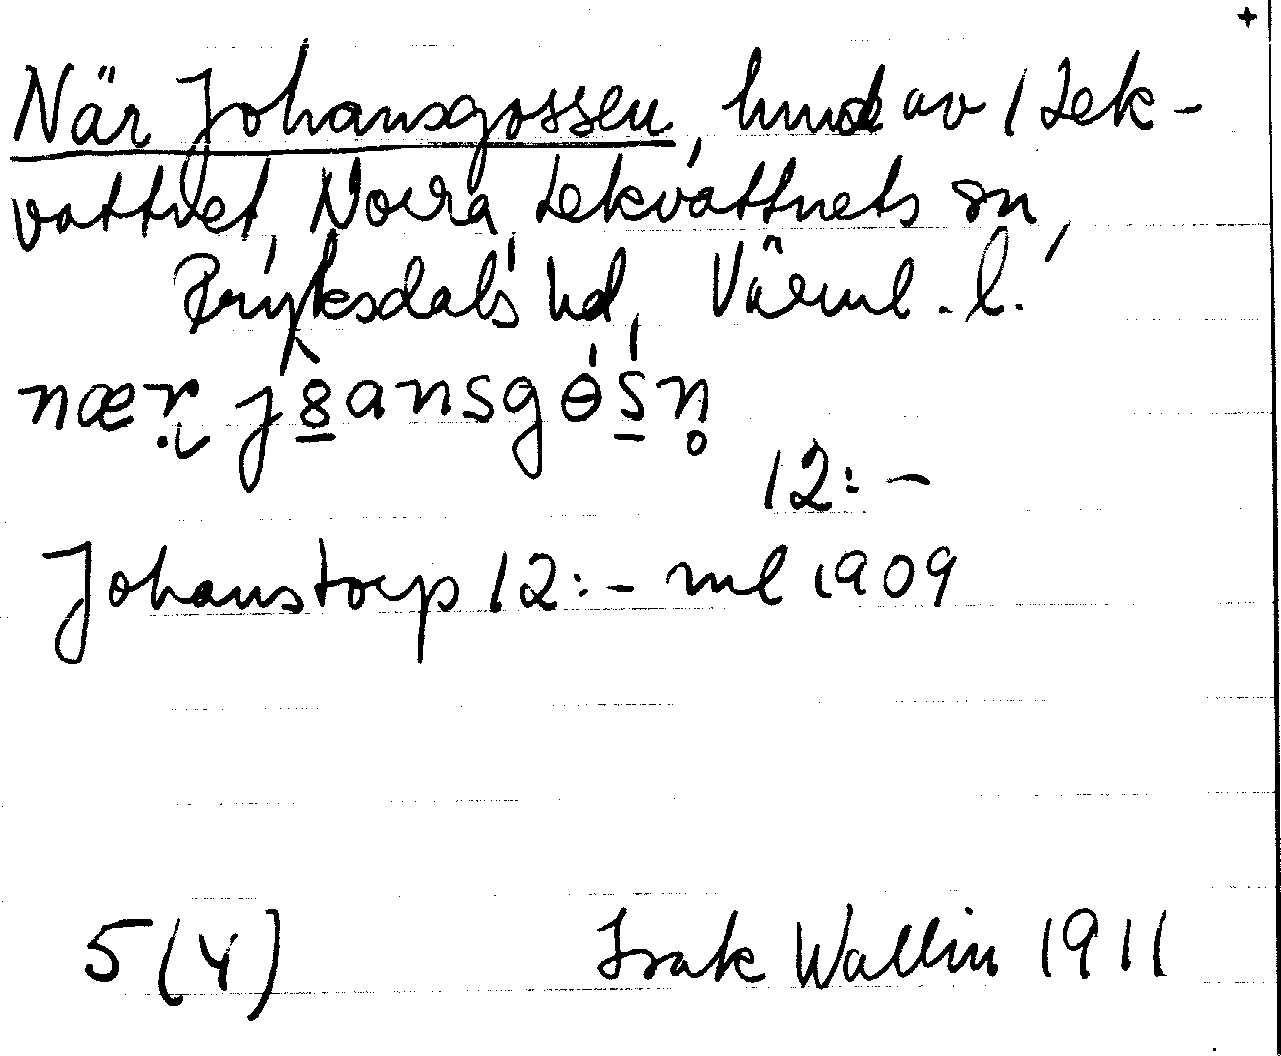 När Johansgossen, hmd av 1 Lek-
vattnet, Norra, Lekvattnets sn,
Fryksdals hd, Värml. l.
nær joansgɵ́sn̥
12:-
Johanstorp 12:- ml 1909
5(4) Isak Wallin 1911